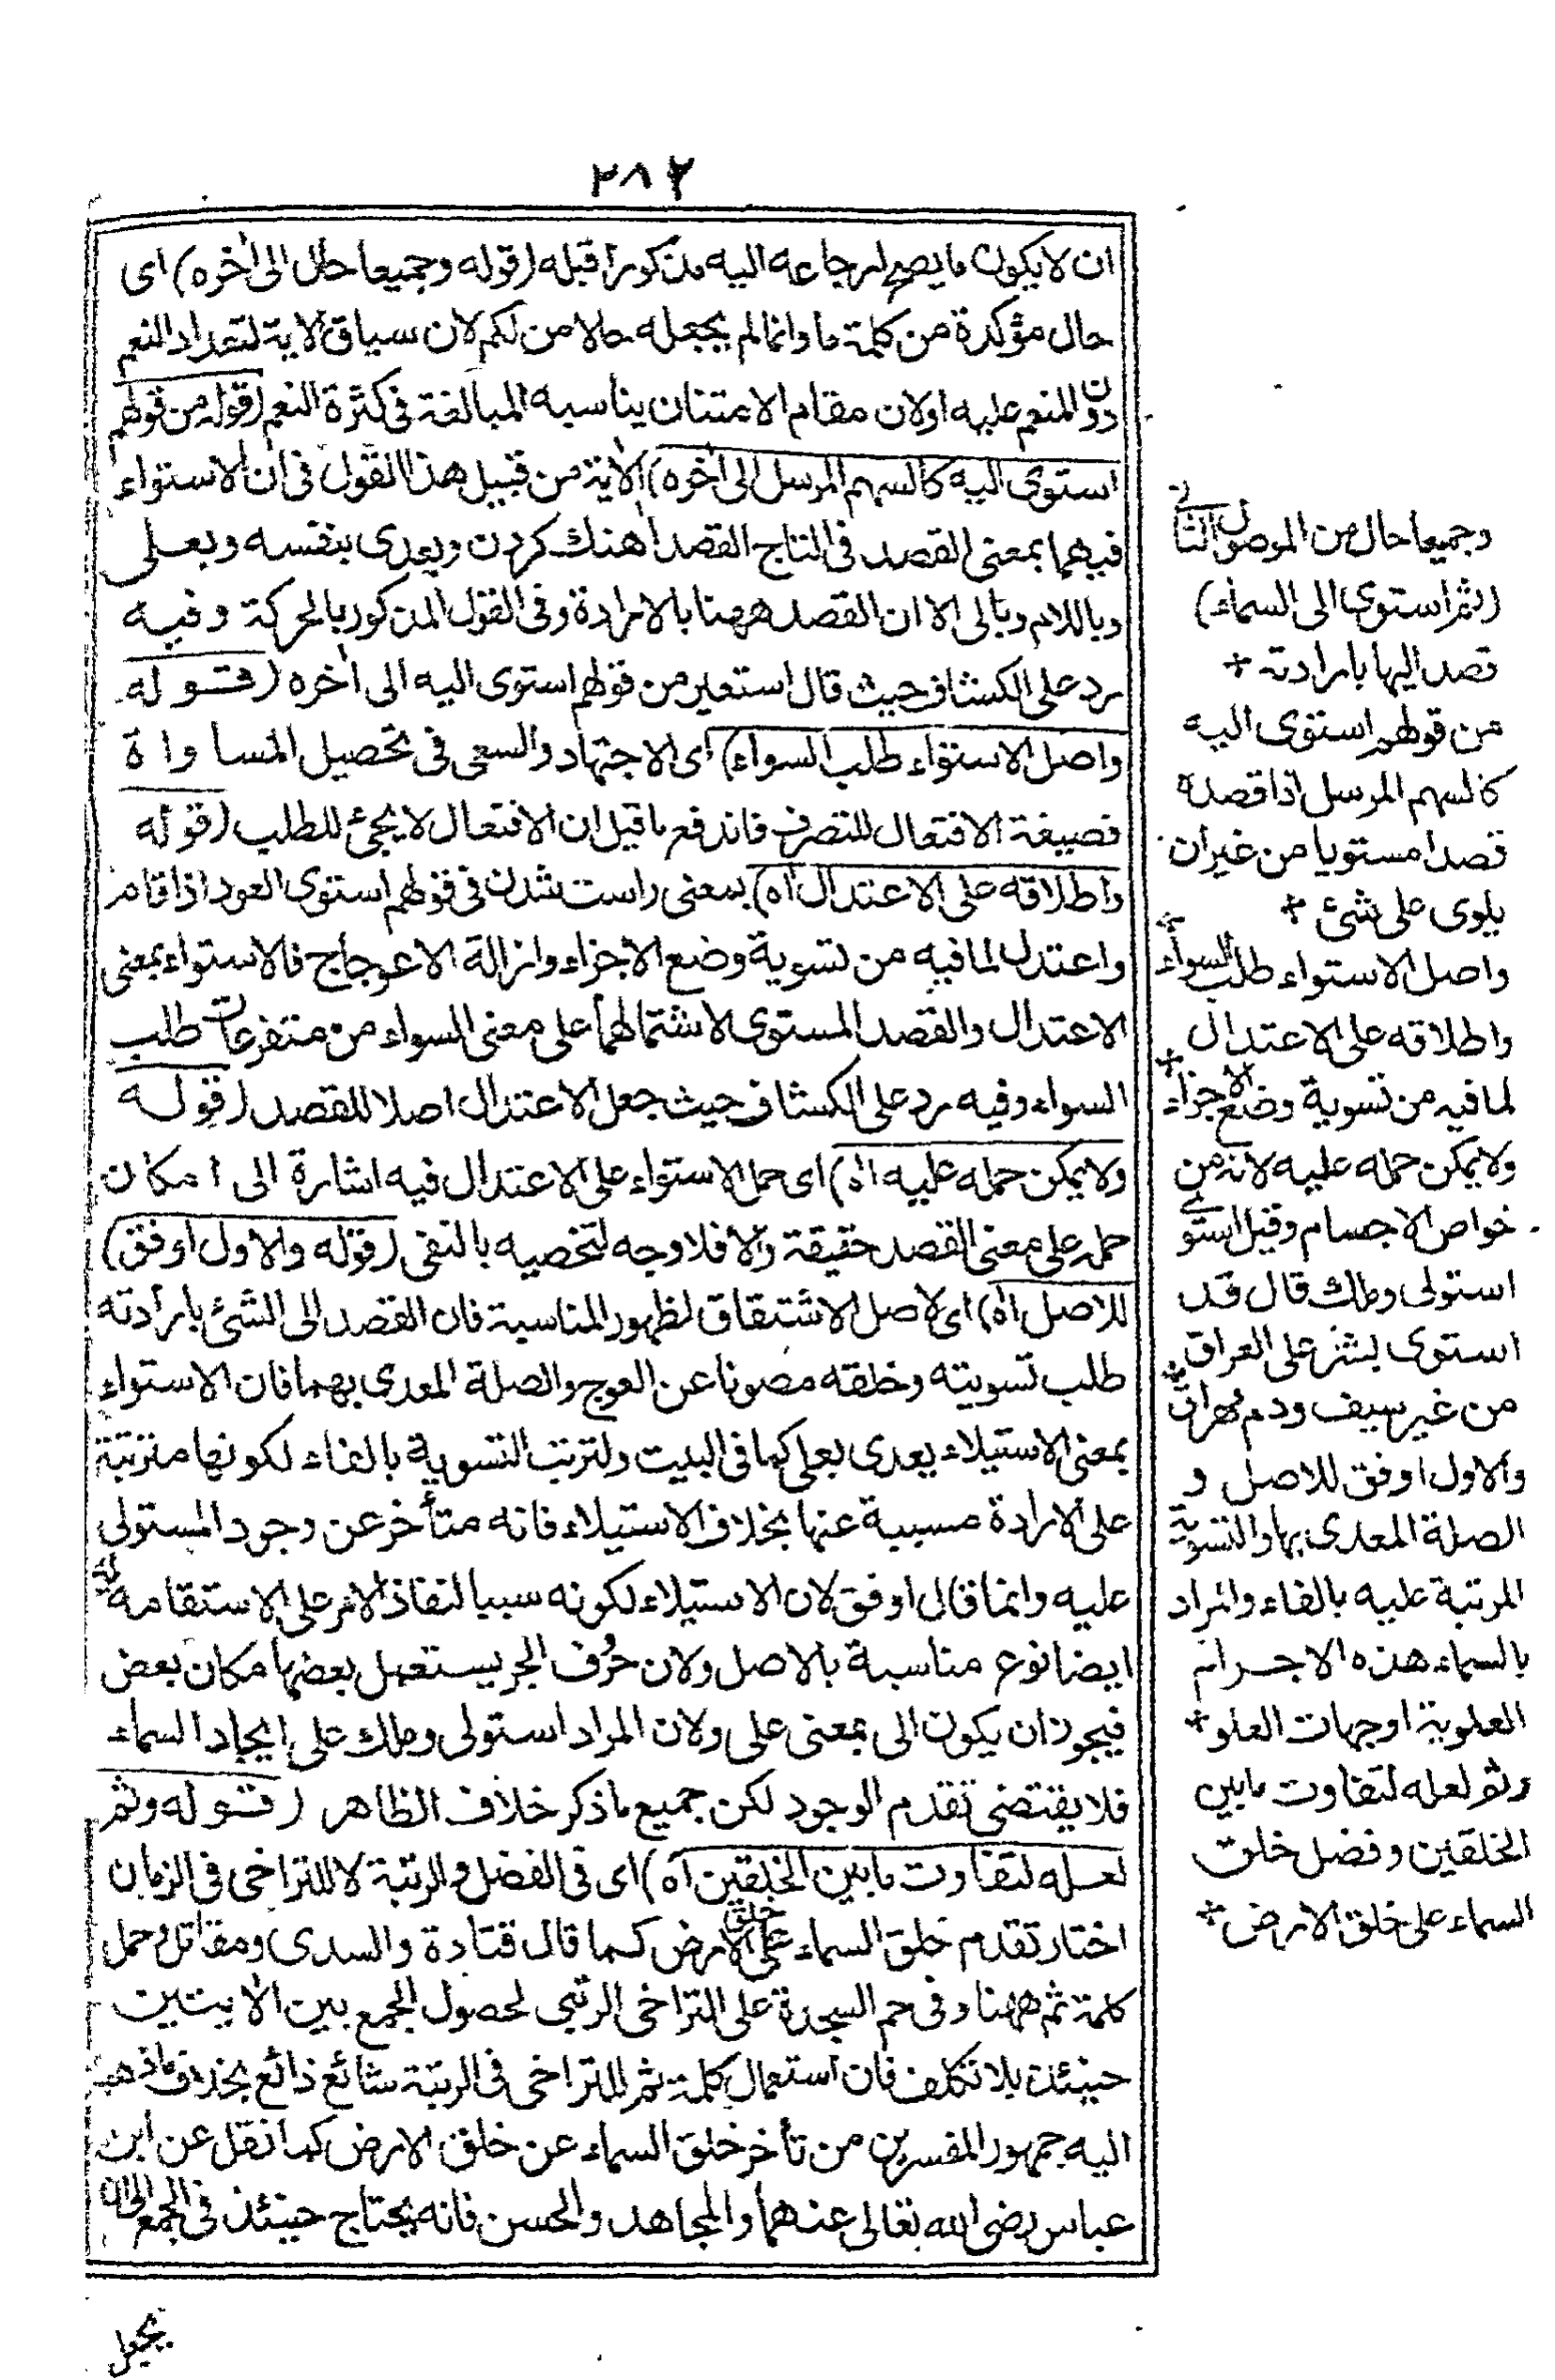 ٢٨٢
ان لا يكون ما يصح لرجاعه اليه مذكورا قبله (قوله وجميعا حال الى اخره) اى
حال مؤكدة من كلمة ما وانما لم يجعله حالا من لكم لان سياق الاية لتعداد النعم
دون المنعم عليه او لان مقام الامتنان يناسبه المبالغة فى كثرة النعم (قوله من قولهم
استوى اليه كالسهم المرسل الى اخره) الاية من قبيل هذا القول فى ان الاستواء
فيهما بمعنى القصد فى التاج القصد اهنك كردن ويعدى بنفسه وبعلى
وباللام وبالى الا ان القصد ههنا بالارادة وفى القول المذكور بالحركة وفيه
رد على الكشاف حيث قال استعير من قولهم استوى اليه الى اخره (قوله
واصل الاستواء طلب السواء) اى الاجتهاد والسعى فى تحصيل المساواة
فصيغة الافتعال للتصرف فاندفع ما قيل ان الافتعال لا يجئ للطلب (قوله
واطلاقه على الاعتدال اه) بمعنى راست شدن فى قولهم استوى العود اذا قام
واعتدل لما فيه من تسوية وضع الاجزاء وازالة الاعوجاج فالاستواء بمعنى
الاعتدال والقصد المستوى لاشتمالهما على معنى السواء من متفرعات طلب
السواء وفيه رد على الكشاف حيث جعل الاعتدال اصلا للقصد (قوله
ولا يمكن حمله عليه اه) اى حمل الاستواء على الاعتدال فيه اشارة الى امكان
حمله على معنى القصد حقيقة والا فلا وجه لتخصيه بالنفى (قوله والاول اوفق)
للاصل اه) اى لاصل الاشتقاق لظهور المناسبة فان القصد الى الشئ بارادته
طلب تسويته وخلقه مصونا عن العوج والصلة المعدى بهما فان الاستواء
بمعنى الاستيلاء يعدى بعلى كما فى البيت ولترتب التسوية بالفاء لكونها مترتبة
على الارادة مسببة عنها بخلاف الاستيلاء فانه متأخر عن وجود المستولى
عليه وانما قال اوفق لان الاستيلاء لكونه سببا لنفاذ الامر على الاستقامة
ايضا نوع مناسبة بالاصل ولان حرف الجر يستعمل بعضها مكان بعض
فيجوز ان يكون الى بمعنى على ولان المراد استولى وملك على ايجاد السماء
فلا يقتضى تقدم الوجود لكن جميع ما ذكر خلاف الظاهر (قوله وثم
لعله لتفاوت ما بين الخلقين اه) اى فى الفضل والرتبة لا للتراخى فى الزمان
اختار تقدم خلق السماء على خلق الارض كما قال قتادة والسدى ومقاتل وحمل
كلمة ثم ههنا وفى حم السجدة على التراخى الرتبى لحصول الجمع بين الايتين
حينئذ بلا تكلف فان استعمال كلمة ثم للتراخى فى الرتبة شائع ذائع بخلاف ما ذهب
اليه جمهور المفسرين من تأخر خلق السماء عن خلق الارض كما نقل عن ابن
عباس رضى الله تعالى عنهما والمجاهد والحسن فانه يحتاج حينئذ فى الجمع الى ان
وجميعا حال من الموصول الثانى
(ثم استوى الى السماء)
قصد اليها بارادته +
من قولهم استوى اليه
كالسهم المرسل اذا قصده
قصدا مستويا من غير ان
يلوى على شئ +
واصل الاستواء طلب السواء
واطلاقه على الاعتدال
لما فيه من تسوية وضع الاجزاء +
ولا يمكن حمله عليه لانه من
خواص الاجسام وقيل استوى
استولى وملك قال قد
استوى بشر على العراق
من غير سيف ودم مهراق +
والاول اوفق للاصل و
الصلة المعدى بها والتسوية
المرتبة عليه بالفاء والمراد
بالسماء هذه الاجرام
العلوية او جهات العلو +
وثم لعله لتفاوت ما بين
الخلقين وفضل خلق
السماء على خلق الارض +